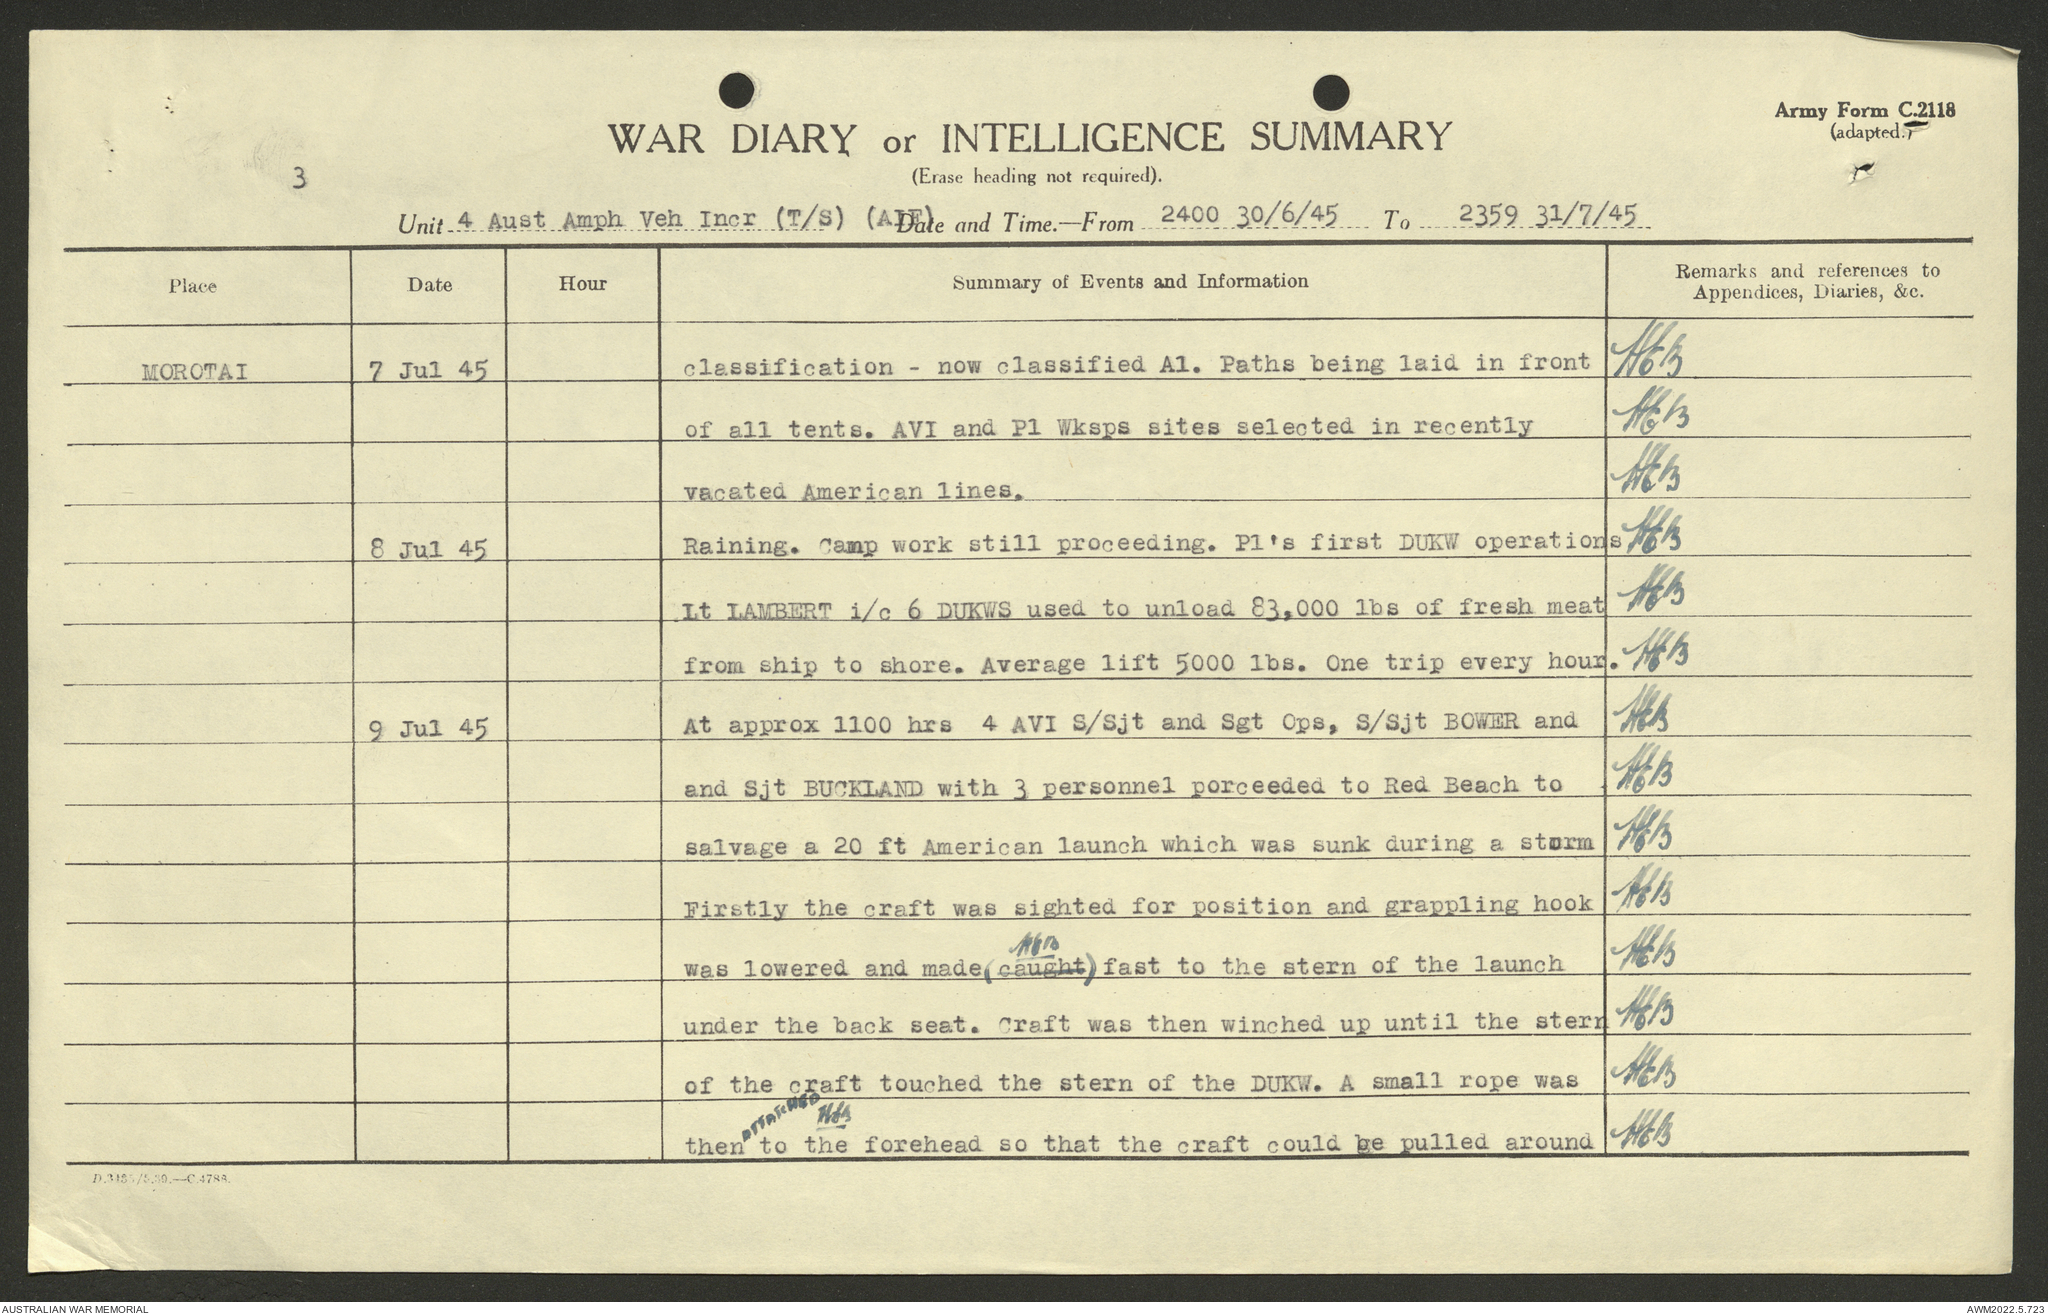 Army Form C.2118
(adapted.)
WAR DIARY or INTELLIGENCE SUMMARY
(Erase heading not required).
3
Unit 4 Aust Amph Veh Incr (T/S) (AIF) Date and Time.—From 2400 30/6/45 To 2359 31/7/45
Place Date Hour Summary of Events and Information Remarks and references to Appendices, Diaries, &c.
MOROTAI 7 Jul 45 classification - now classified A1. Paths being laid in front HGB
of all tents. AVI and Pl Wksps sites selected in recently HGB
vacated American lines. HGB
8 Jul 45 Raining. Camp work still proceeding. Pl's first DUKW operations HGB
Lt LAMBERT i/c 6 DUKWS used to unload 83,000 lbs of fresh meat HGB
from ship to shore. Average lift 5000 lbs. One trip every hour. HGB
9 Jul 45 At approx 1100 hrs 4 AVI S/Sjt and Sgt Ops, S/Sjt BOWER and HGB
and Sjt BUCKLAND with 3 personnel porceeded to Red Beach to HGB
salvage a 20 ft American launch which was sunk during a storm HGB
Firstly the craft was sighted for position and grappling hook HGB
HGB
was lowered and made (caught) fast to the stern of the launch HGB
under the back seat. Craft was then winched up until the stern HGB
of the craft touched the stern of the DUKW. A small rope was HGB
ATTATCHED HGB
then to the forehead so that the craft could be pulled around HGB
AUSTRALIAN WAR MEMORIAL
AWM2022.5.723